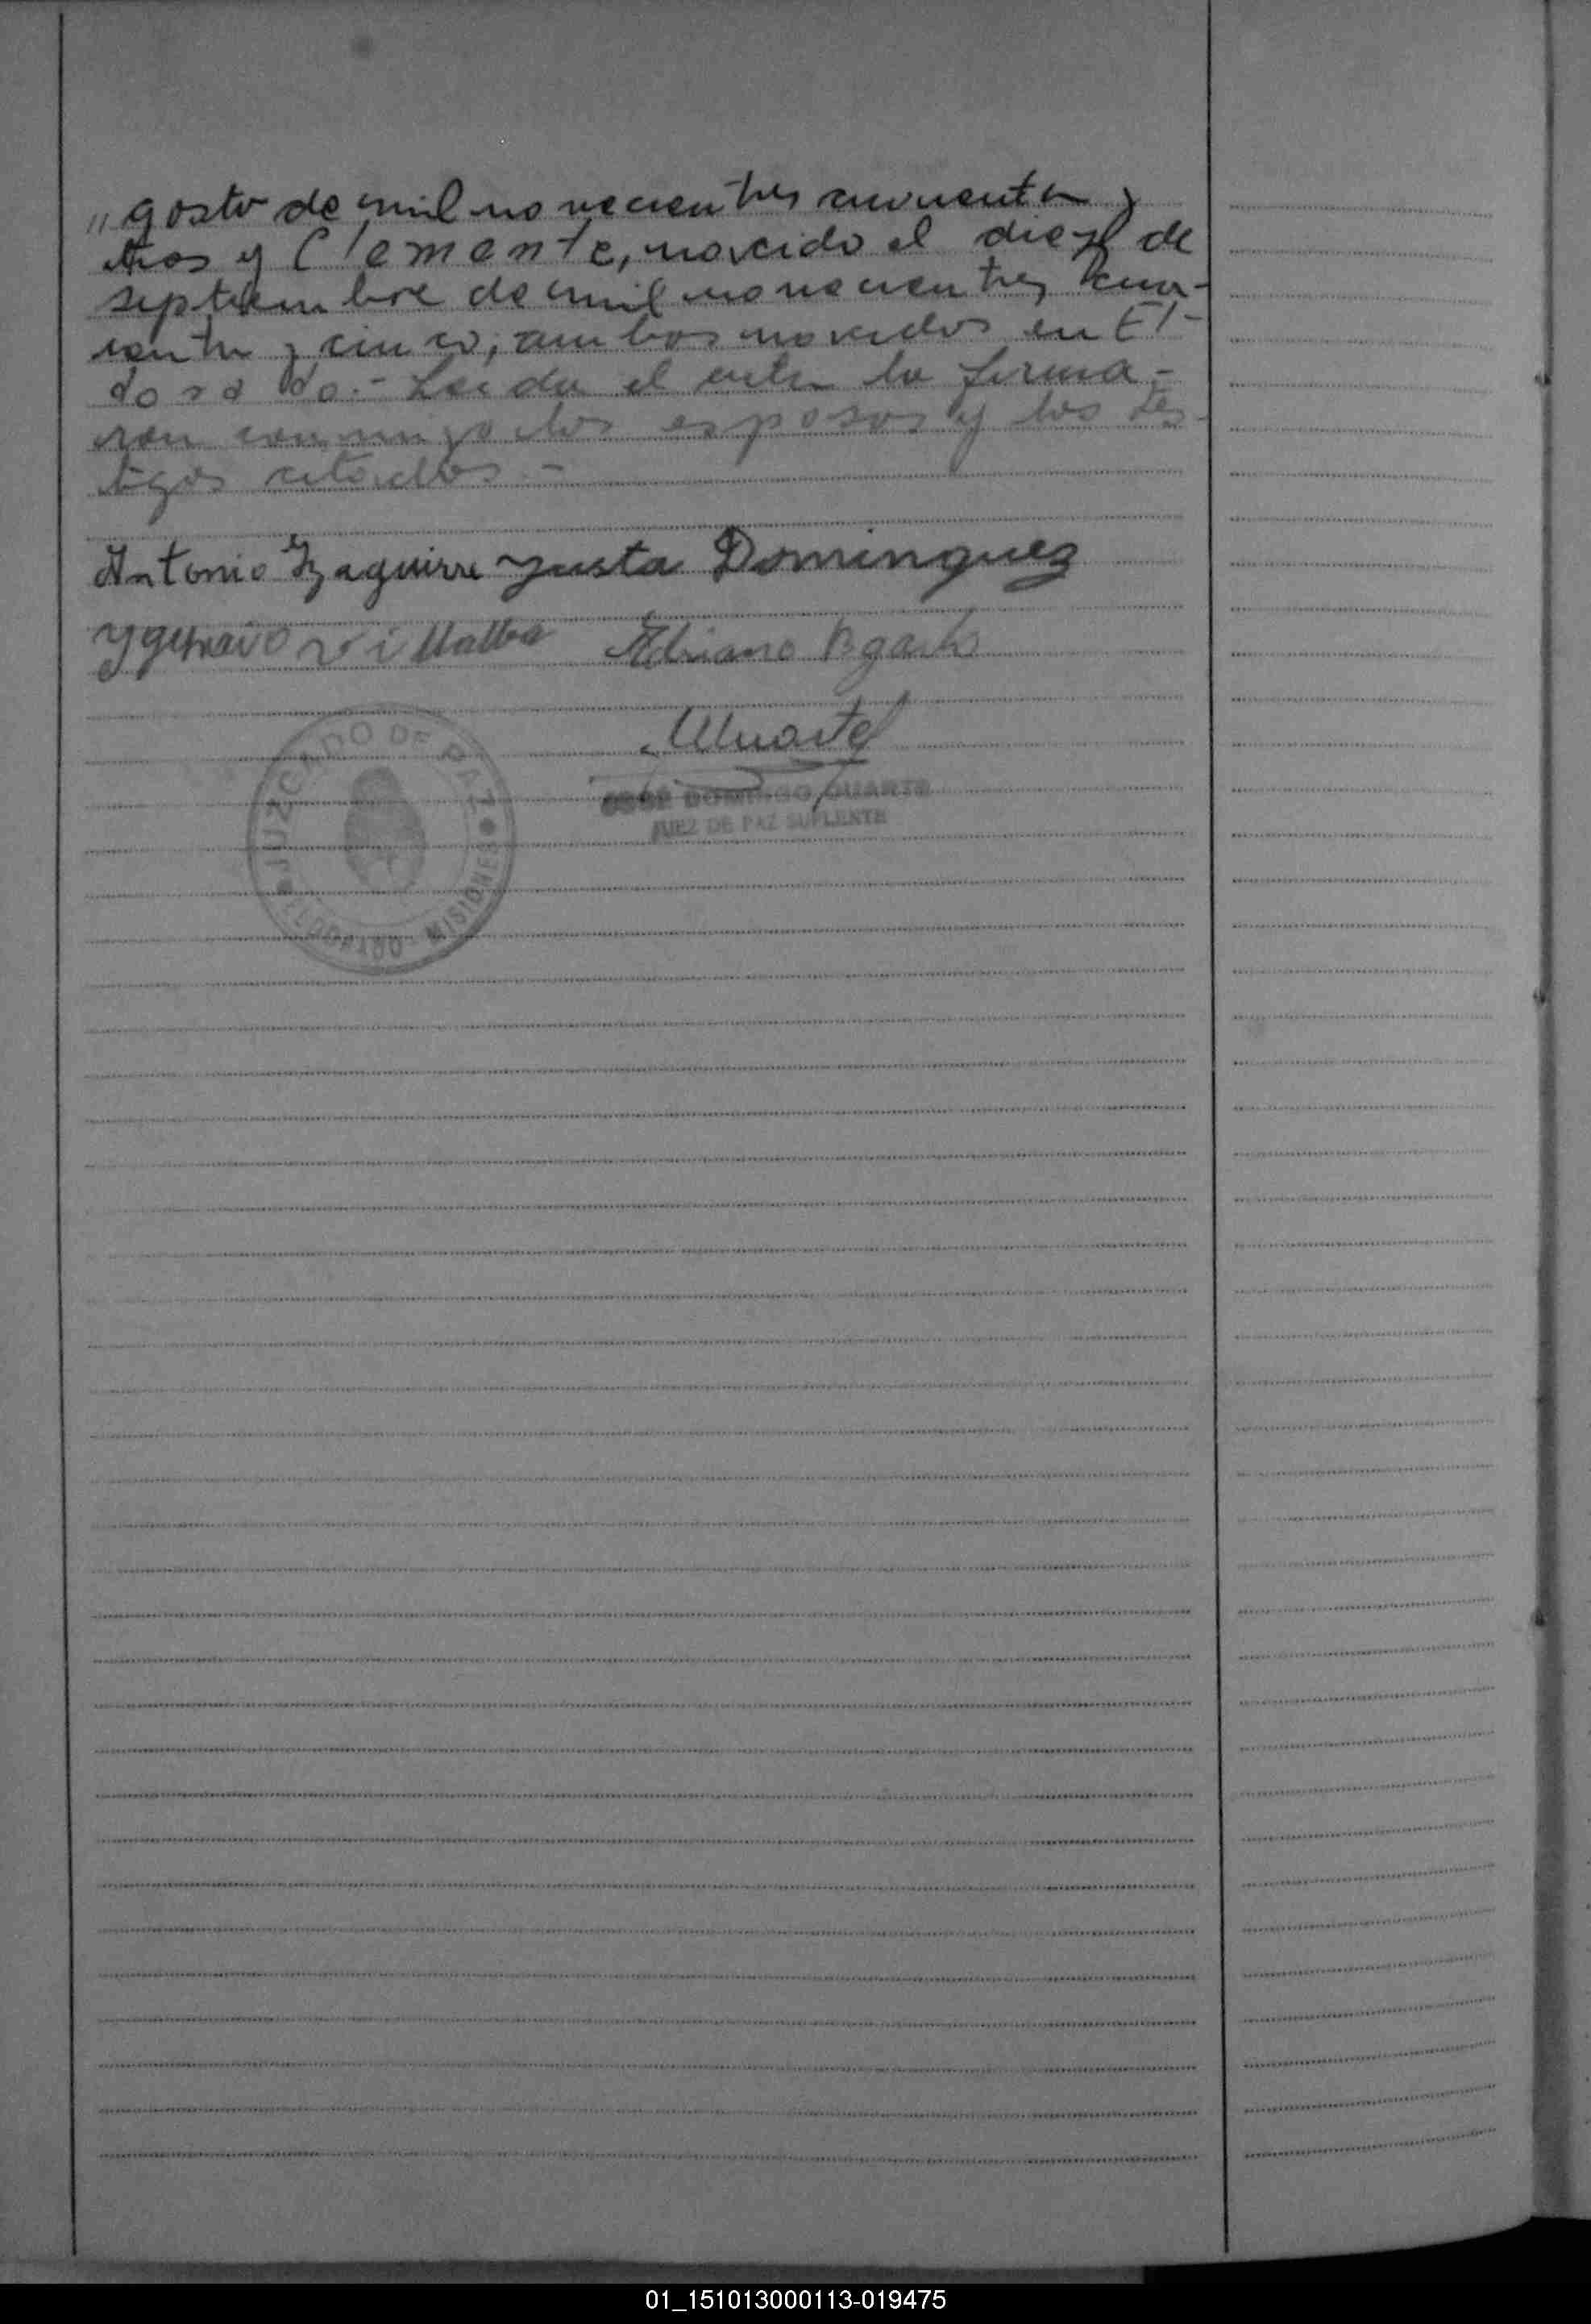 "gosto de mil novecientos cuarenta y
tres y Clemente, nacido el diez de
septiembre de mil novecientos cua-
renta y cinco, ambos nacidos en El-
dorado.- Leida el acta la firma-
ron conmigo los esposos y los tes-
tigos citados.-
Antonio Yzaguirre Justa Dominguez
Ygnacio Villalba Adriano
JUZGADO DE PAZ
ELDORADO - MISIONES
JOSE DOMINGO DUARTE
JUEZ DE PAZ SUPLENTE
01_151013000113-019475